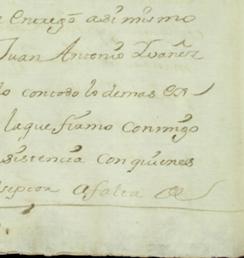 e entregò asimismo
Juan Antonio Ivañez
lo con todo lo demas es
la que firmo conmigo
sistencia con quienes
septor afalta de